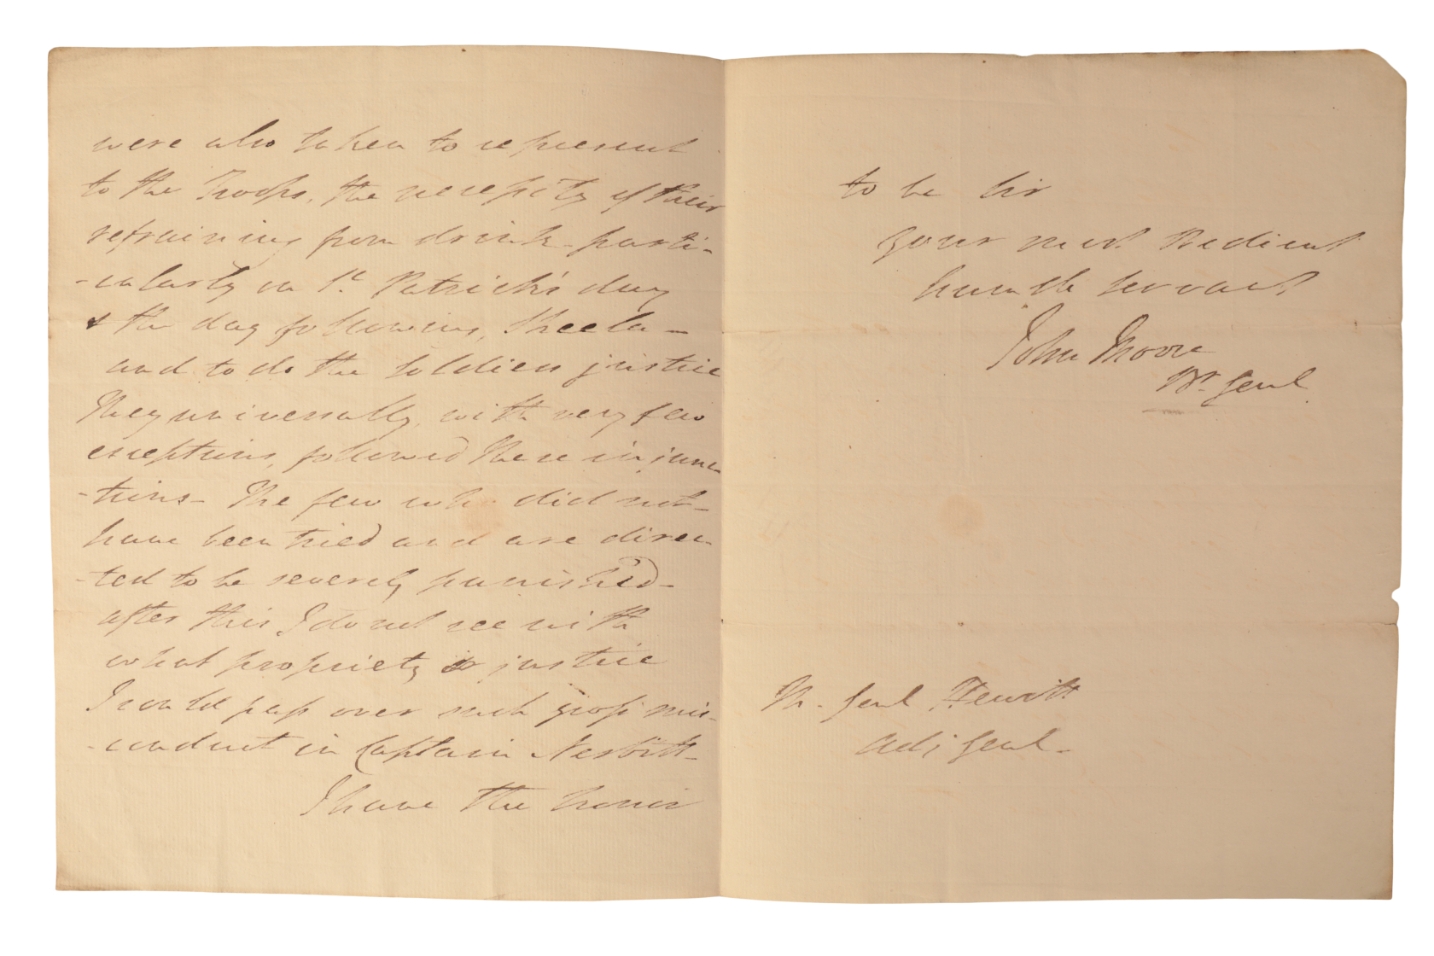 were also taken to represent
to the Troops, the necessity of their
refraining from drink - parti-
-cularly on St. Patrick's day
& the day following, Sheela -
and to do the soldiers justice
They universally, with very few
exceptions, followed these injunc
-tions - The few who did not -
have been tried and are direc-
-ted to be severely punished -
after this I do not see with
what propriety or justice
I could pass over such gross mis-
-conduct in Captain Nesbitt -
I have the honor
to be Sir
your most obedient
humble servant
John Moore
Br. Genl.
M. Genl Hewitt
Adj Genl -